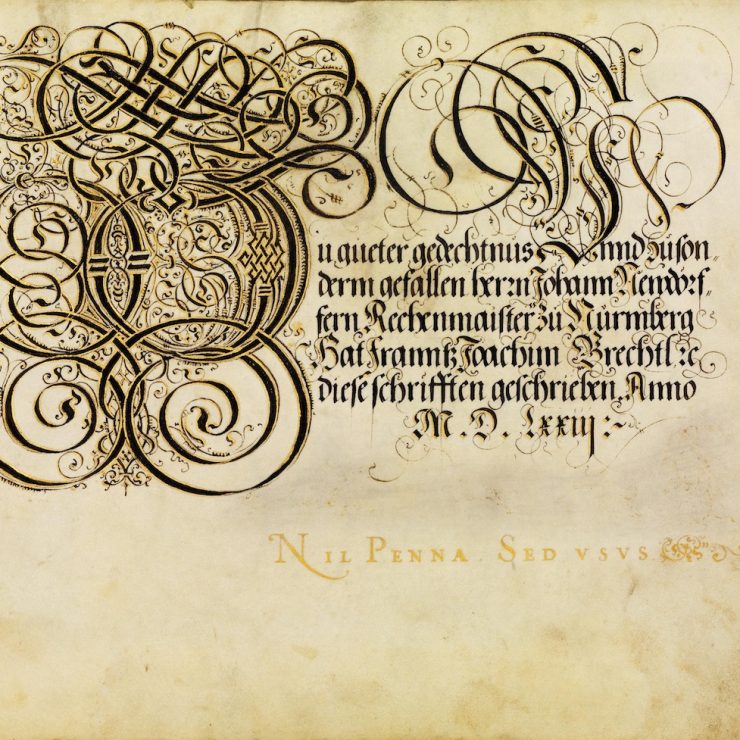 Zu gueter gedechtnus Vnnd zu son-
derm gefallen herrn Johann Newdorf-
fern Rechenmaister zu Nürmberg
Hat Franntz Joachim Brechtl ꝛc
diese schrifften geschrieben. Anno
M . D . Lxxiij :~
NIL PENNA SED VSVS